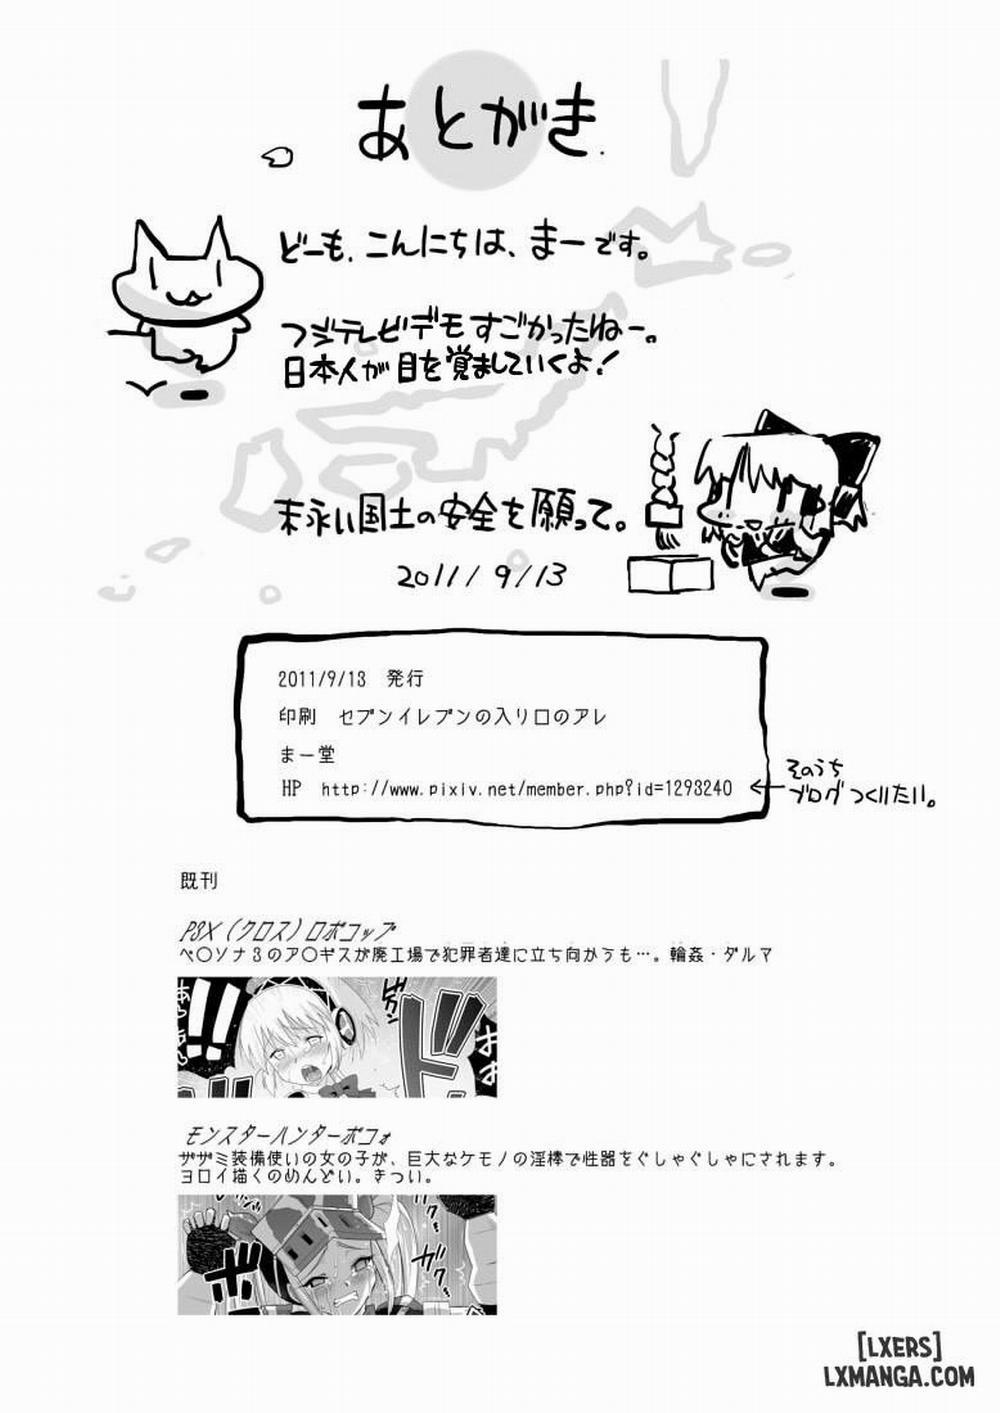 あとがき.
どーも、こんにちは、まーです。
フジテレビデモすごかったねー。
日本人が目を覚ましていくよ!
末永い国土の安全を願って。
2011/9/13
2011/9/13 発行
印刷 セブンイレブンの入り口のアレ
まー堂
HP http://www.pixiv.net/member.php?id=1293240
そのうち
ブログつくりたい。
既刊
P3X(クロス)ロボコップ
ペ○ソナ3のア○ギスが廃工場で犯罪者達に立ち向かうも…。輪姦・ダルマ
!!
ド
モンスターハンターボコォ
ザザミ装備使いの女の子が、巨大なケモノの淫棒で性器をぐしゃぐしゃにされます。
ヨロイ描くのめんどい。きつい。
ボキ
ガク
ガク
[LXERS]
LXMANGA.COM